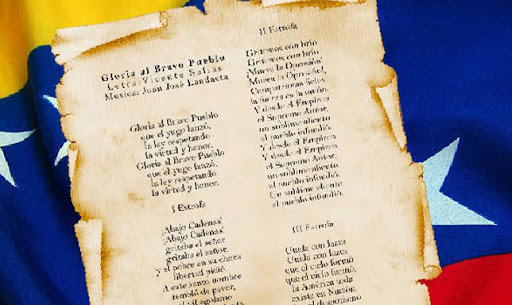 Gloria al Bravo Pueblo
Letra: Vicente Salias
Musica: Juan José Landaeta
Gloria al Bravo Pueblo
que el yugo lanzó,
la ley respetando
la virtud y honor.
Gloria al Bravo Pueblo
que el yugo lanzó,
la ley respetando
la virtud y honor.
I Estrofa
¡Abajo Cadenas!
¡Abajo Cadenas!
gritaba el señor
gritaba el señor
y el pobre en su choza
libertad pidió
A este santo nombre
tembló de pavor,
el egoismo
II Estrofa
Gritemos con brío
Gritemos con brío
¡Muera la Opresión!
¡Muera la Opresión!
Compatriotas fieles,
la fuerza es la unión.
Y desde el Empíreo
el Supremo Autor,
un sublime aliento
al pueblo infundió.
Y desde el Empíreo
el Supremo Autor,
un sublime aliento
al pueblo infundió.
Un sublime aliento
al pueblo infundió.
III Estrofa
Unida con lazos
Unida con lazos
que el cielo formó
que el cielo formó,
la América toda
existe en Nación.
el despotismo